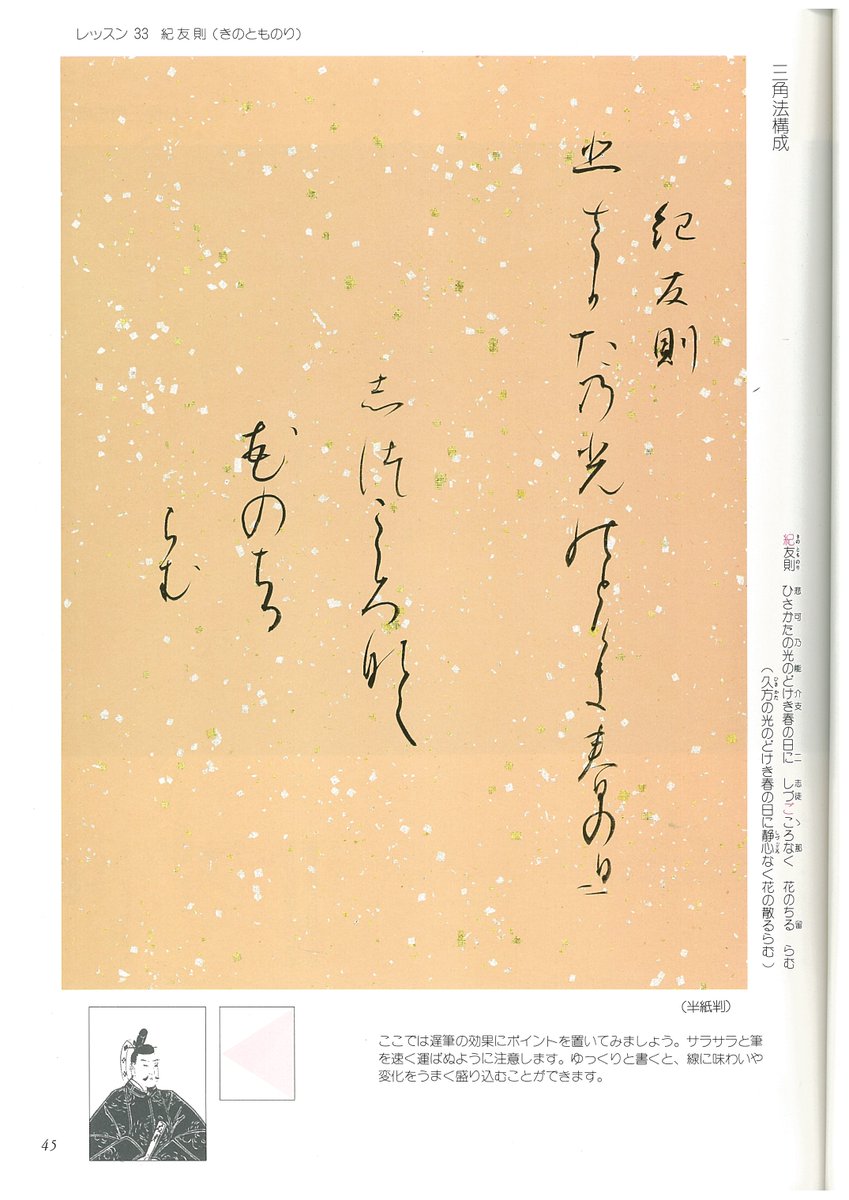 レッスン 33 紀友則（きのとものり）
三角法構成
紀友則
悲さ可た乃光能とけ支春の日二
志徒ゝろ那く
花のちる
らむ
紀友則 ひさかたの光のどけき春の日に しづごころなく 花のちる らむ
きのとものり 悲 可 乃 能 介 支 二 志 徒 ゝ 那 留
（久方の光のどけき春の日に静心なく花の散るらむ）
ひさかた しづごころ
（半紙判）
ここでは遅筆の効果にポイントを置いてみましょう。サラサラと筆
を速く運ばぬように注意します。ゆっくりと書くと、線に味わいや
変化をうまく盛り込むことができます。
45